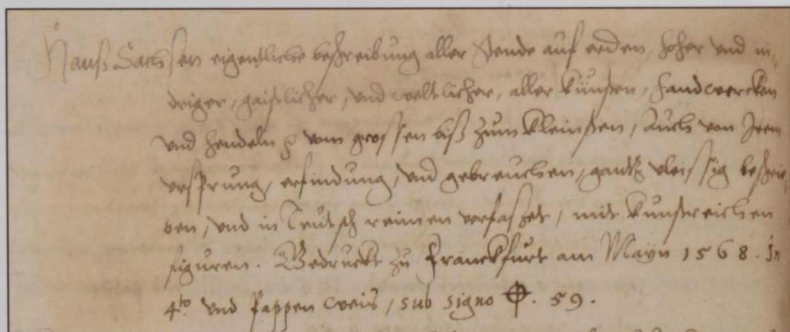 Hanß Sachsen eigentliche beschreibung aller Stende auf erden, hoher und ni,
driger, gaistlicher, und weltlicher, aller künsten, handwercken
und hendeln vom grossen biß zum kleinsten, Auch von Irem
ursprung, erfindung, und gebreuchen, gantz vleissig beschrie,
ben, und in Teutsch reimen verfasset, mit kunstreichen
figuren. Gedruckt zu Franckfurt am Mayn 1568. In
4to und Pappen weis, sub signo . 59.